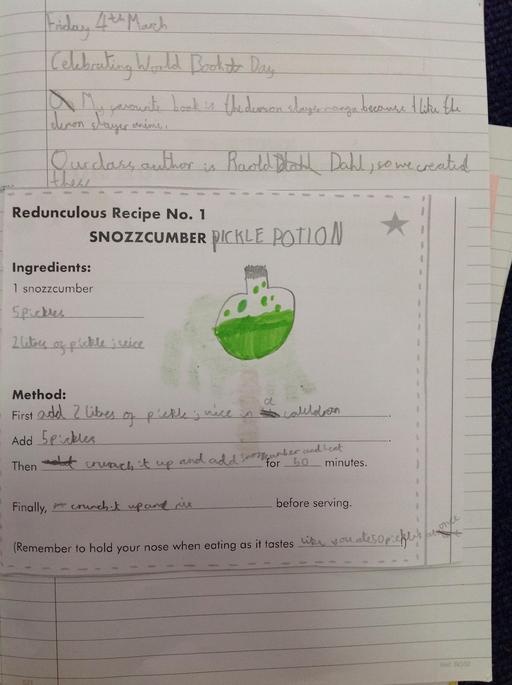 Friday 4th March
Celebrating World Book Day
My favourite book is the demon slayer manga because I like the
demon slayer anime.
Our class author is Raold Dahl, so we created
these
Redunculous Recipe No. 1
SNOZZCUMBER PICKLE POTION
Ingredients:
1 snozzcumber
5 pickles
2 litres of pickle juice
Method:
First add 2 litres of pickle juice in a caldron
Add 5 pickles
Then crunch it up and add snozzcumber and heat for 50 minutes.
Finally, crunch it up and before serving.
(Remember to hold your nose when eating as it tastes like you ate 50 pickles at once